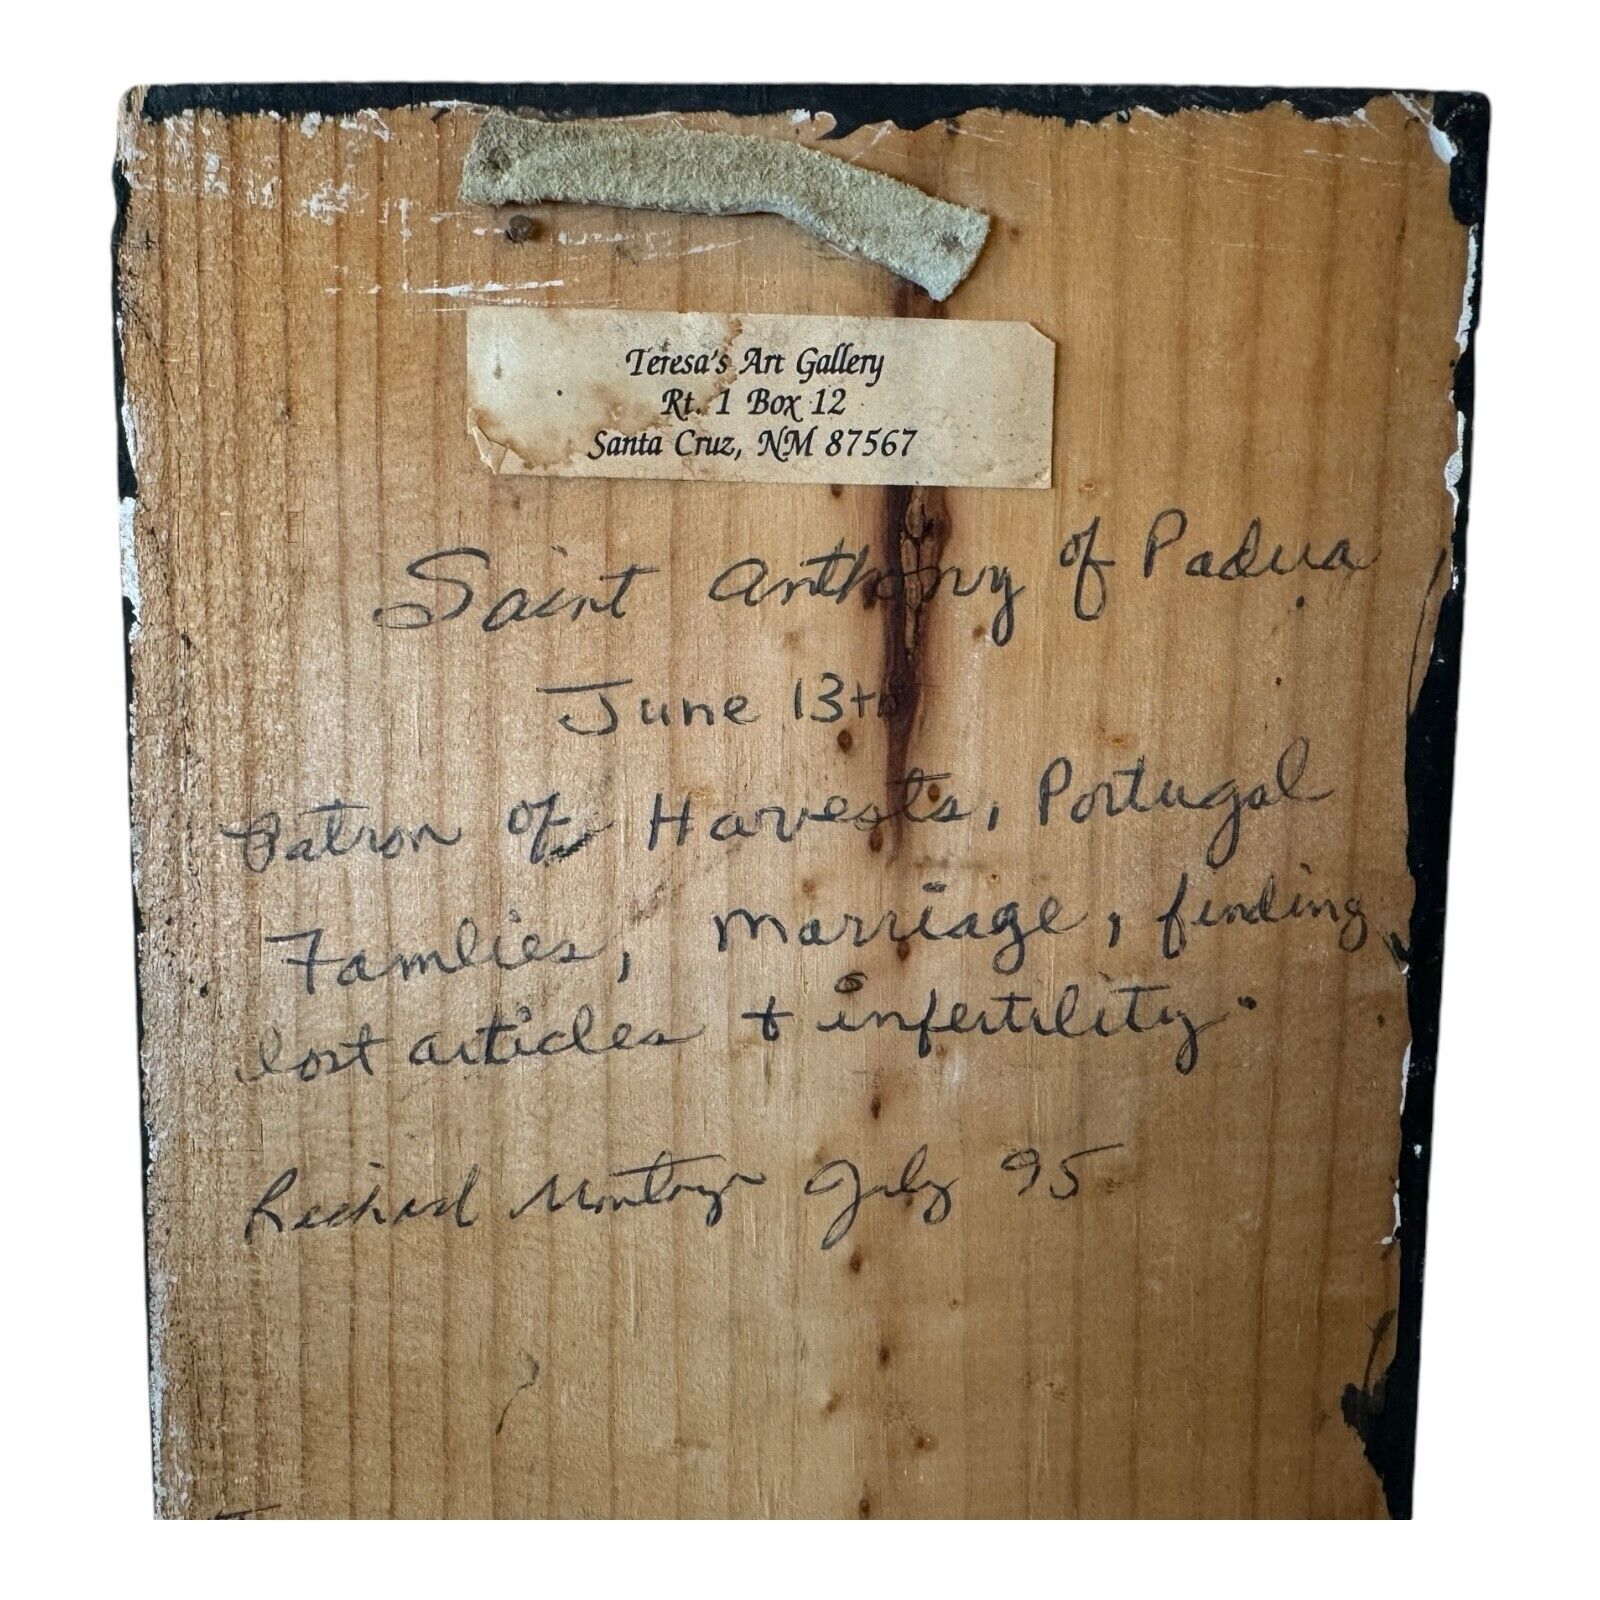 Teresa's Art Gallery
Rt. 1 Box 12
Santa Cruz, NM 87567
Saint Anthony of Padua
June 13th
Patron of Harvests, Portugal
Famlies, Marriage, finding
lost articles + infertility
Richard Montoya July 95